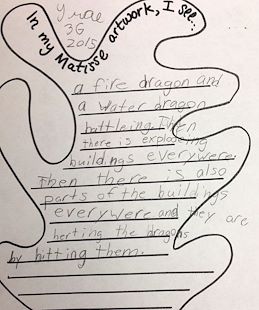 Yrae
3G
2015
In my Matisse artwork, I see...
a fire dragon and
a water dragon
battleing. Then
there is exploseing
buildings everywere.
Then there is also
parts of the buildings
everywere and they are
herting the dragons
by hitting them.